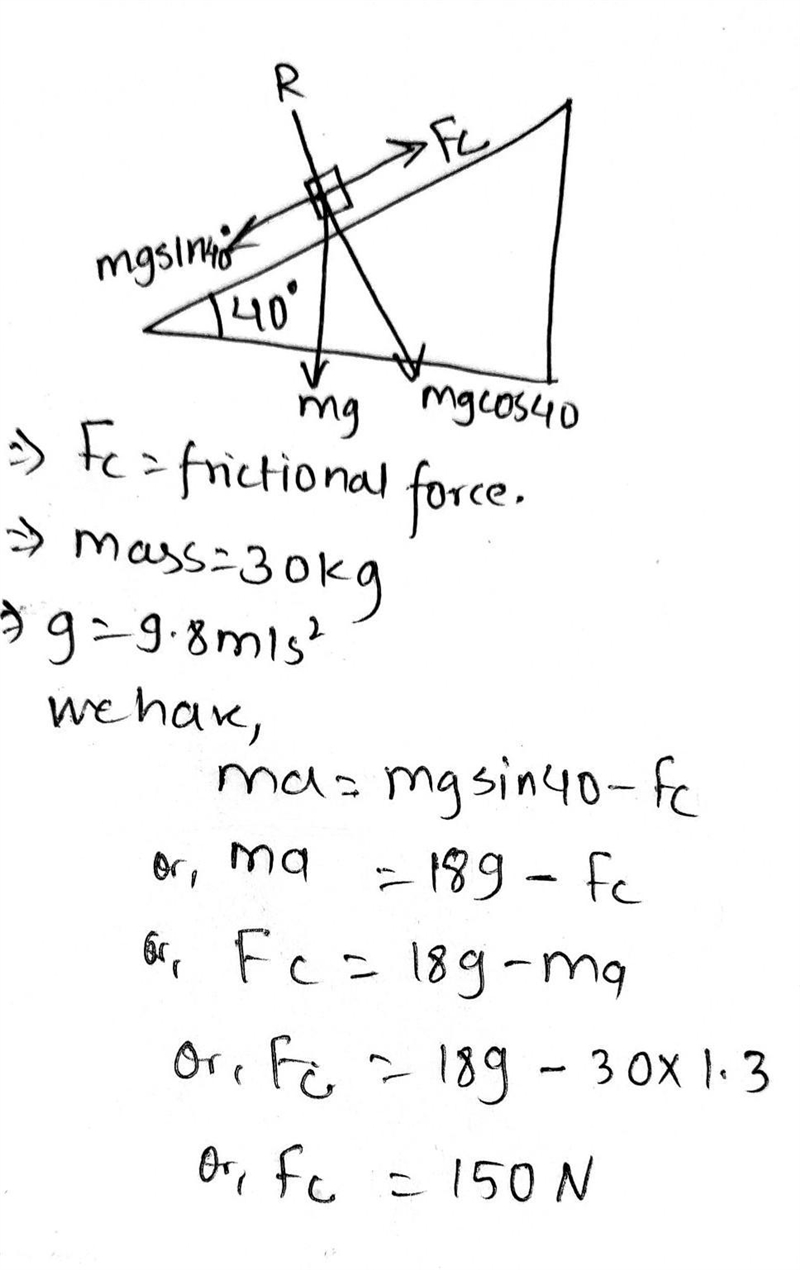 R
Fc
mgsin40°
40°
mg
mgcos40
⇒ Fc = frictional force.
⇒ mass = 30kg
⇒ g = 9.8m/s²
we have,
ma = mg sin40 - fc
or, ma = 189 - fc
or, Fc = 189 - ma
or, Fc = 189 - 30 x 1.3
or, fc = 150 N